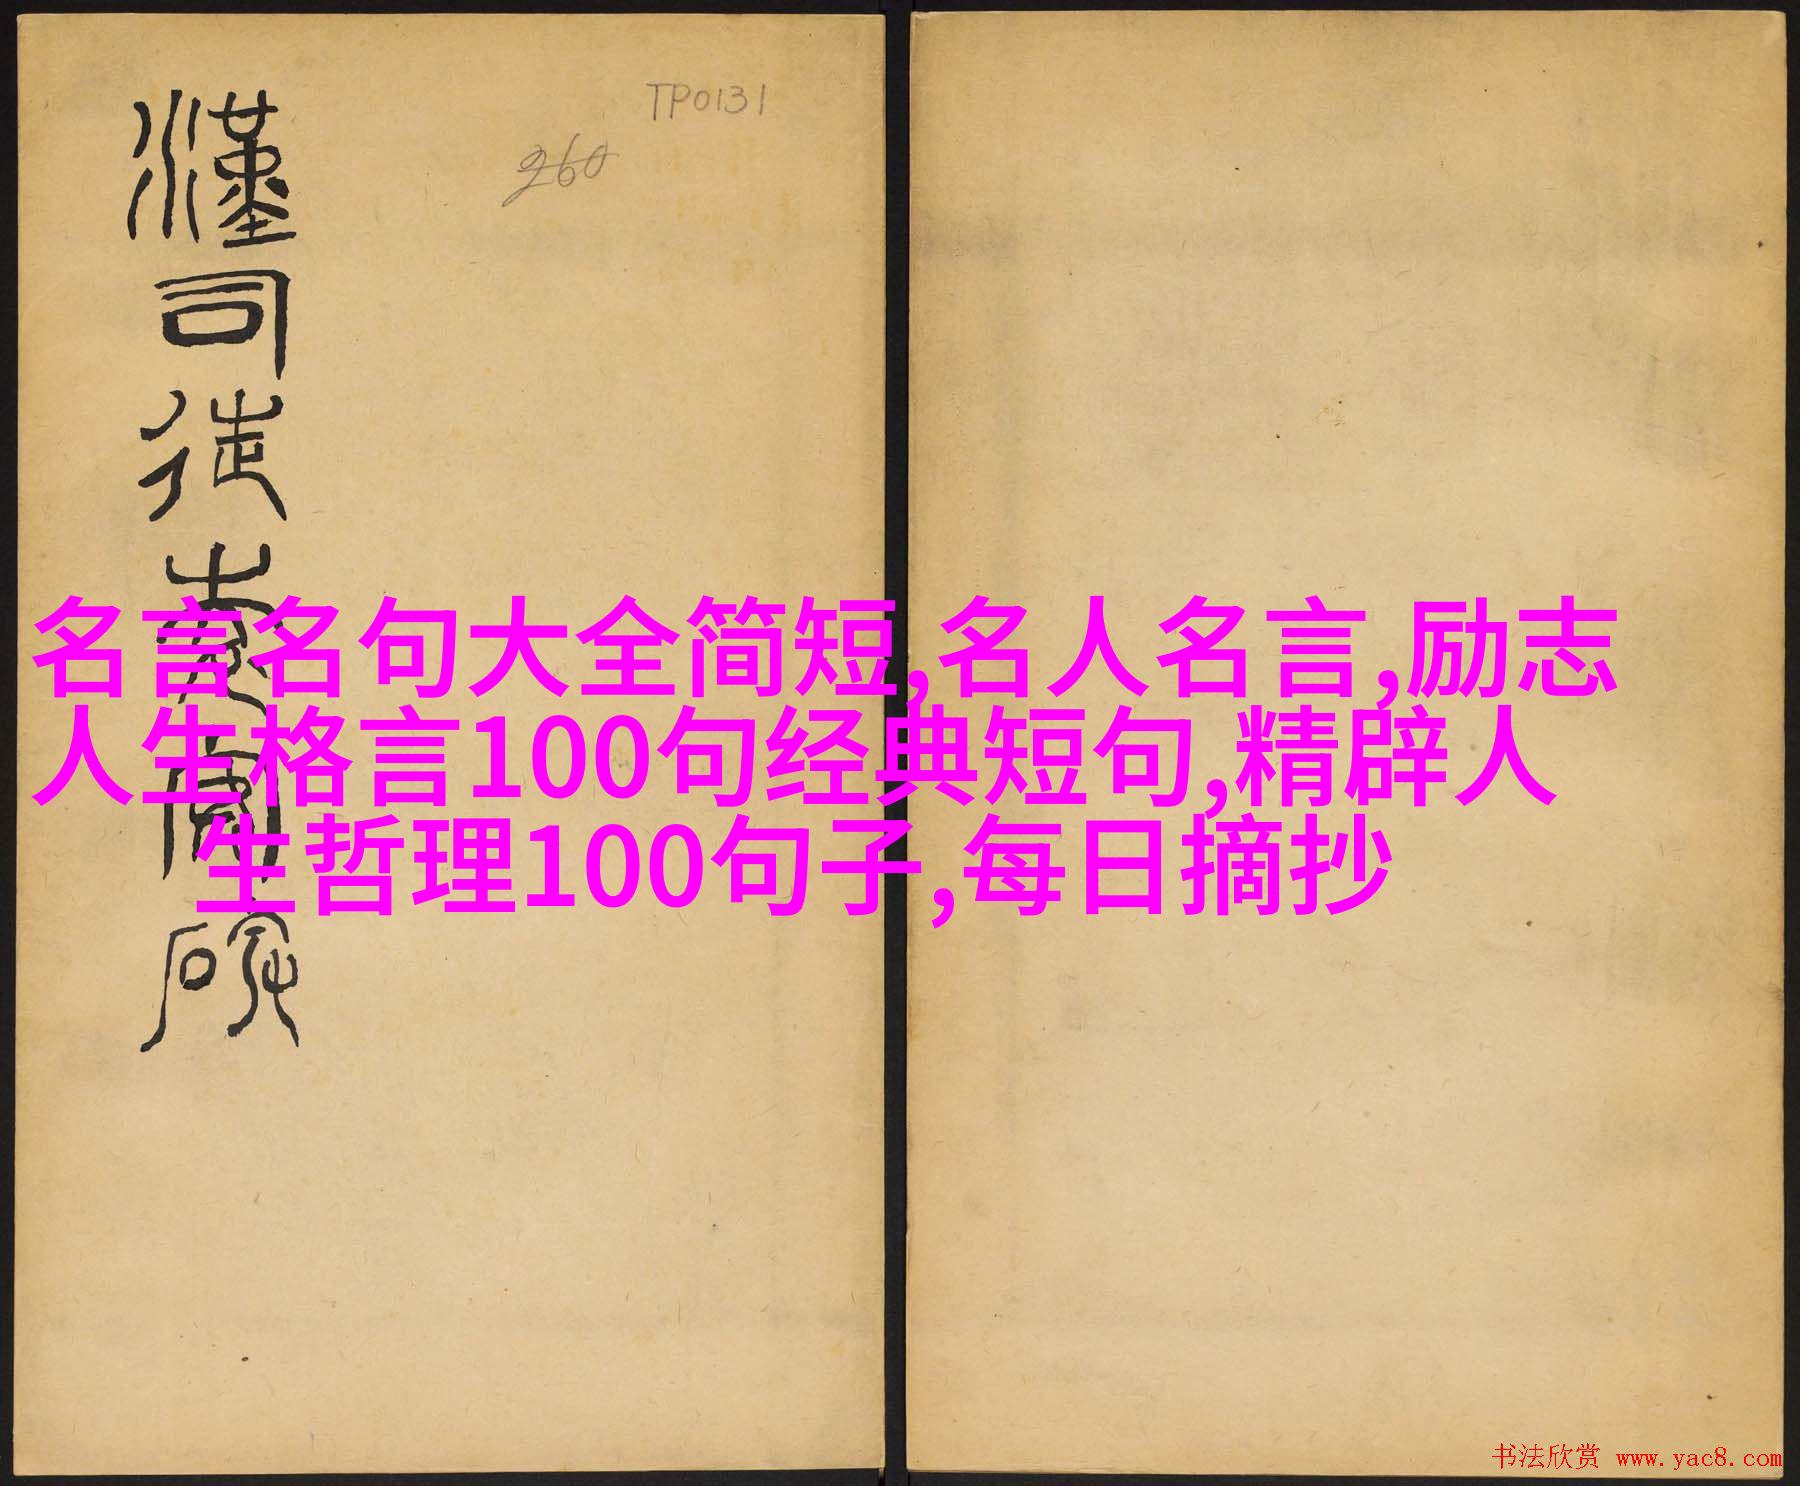 TP0131
260
漢司徒袁碑
名言名句大全简短,名人名言,励志
人生格言100句经典短句,精辟人
生哲理100句子,每日摘抄
书法欣赏 www.yac8.com